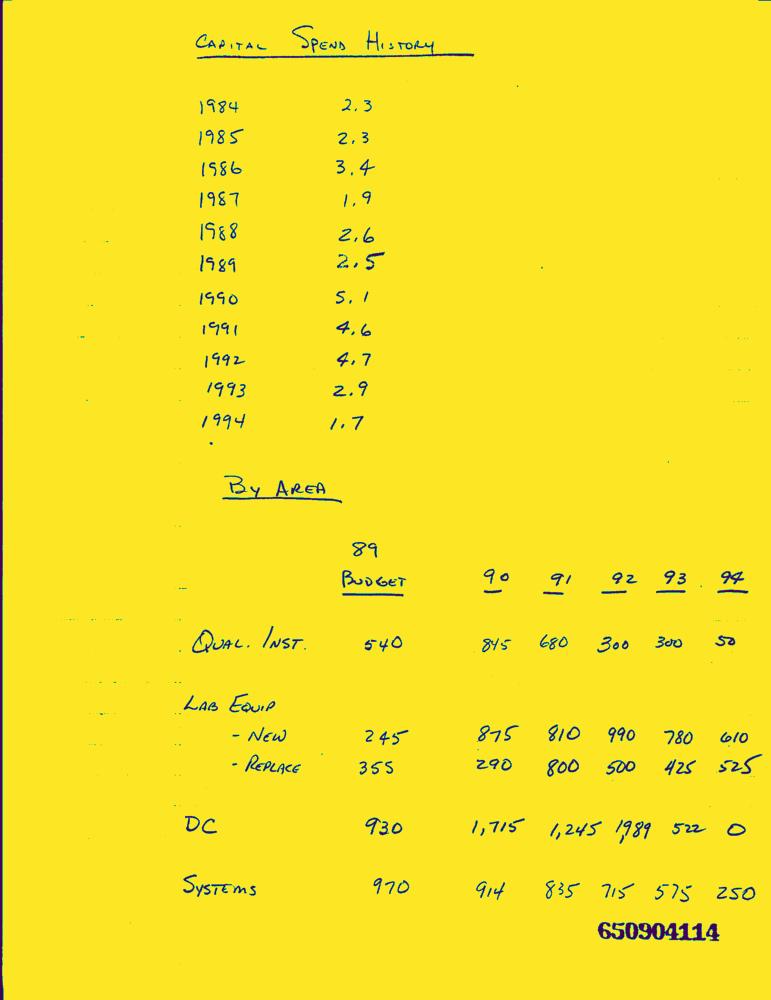 CAPITAL SPEND HISTORY
1984 2.3
1985 2.3
1986 3.4
1987 1.9
1988 2.6
1989 2.5
1990 5.1
1991 4.6
1992 4.7
1993 2.9
1994 1.7
BY AREA
89
BUDGET 90 91 92 93 94
QUAL. INST. 540 845 680 300 300 50
LAB EQUIP
- NEW 245 875 810 990 780 610
- REPLACE 355 290 800 500 425 525
DC 930 1,715 1,245 1,989 522 0
SYSTEMS 970 914 835 715 575 250
650904114